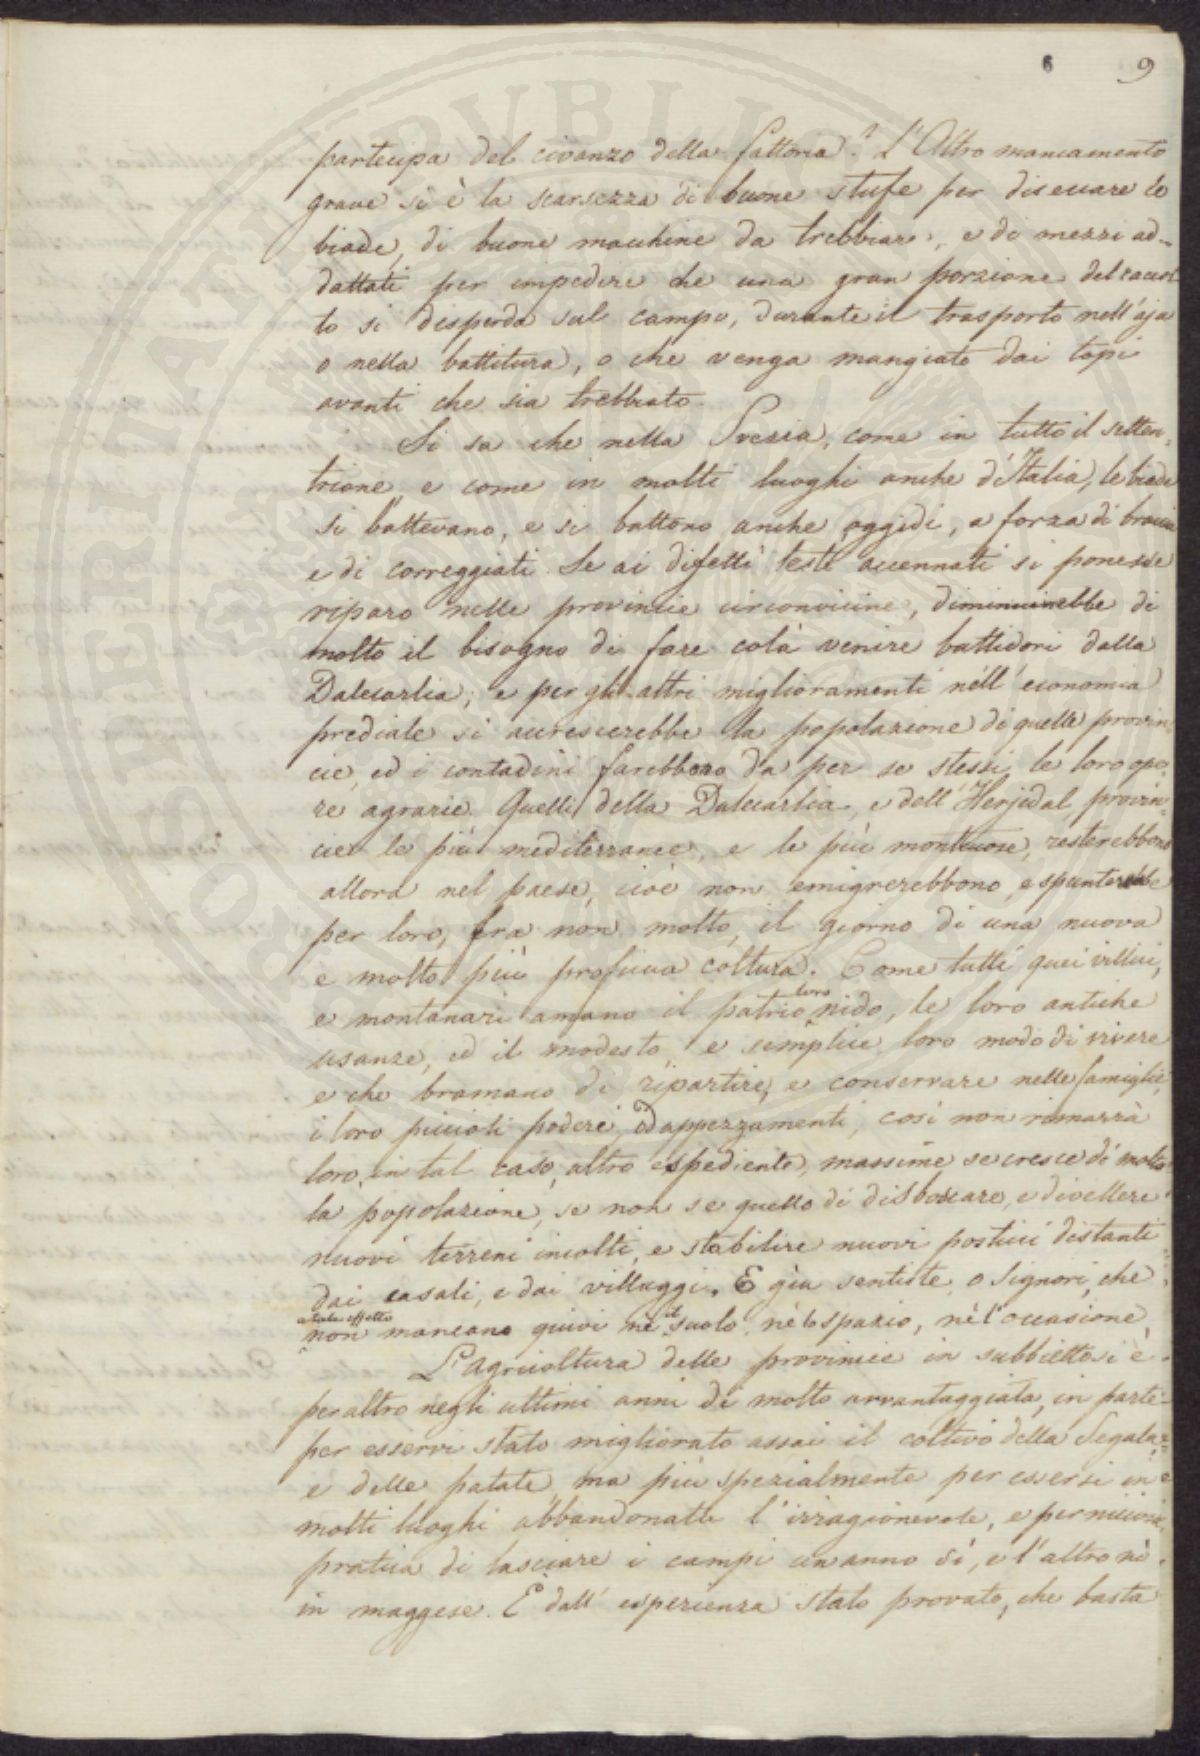 6 9
partecipa del civanzo della fattoria? L'Altro mancamento
grave si è la scarsezza di buone stufe per diseccare le
biade, di buone macchine da trebbiare, e di mezzi ad-
dattati per impedire che una gran porzione del raccol-
to si disperda sul campo, durante il trasporto nell'aja
o nella battitura, o che venga mangiato dai topi
avanti che sia trebbiato.
Si sa che nella Svezia, come in tutto il setten-
trione, e come in molti luoghi anche d'Italia, le biade
si battevano, e si battono anche oggidì, a forza di braccia
e di correggiati. Se ai difetti testè accennati si ponesse
riparo nelle provincie circonvicine, diminuirebbe di
molto il bisogno di fare colà venire battidori dalla
Dalecarlia; e per gli altri miglioramenti nell'economia
prediale si accrescerebbe la popolazione di quelle provin-
cie, ed i contadini farebbero da per se stessi le loro ope-
re agrarie. Quelli della Dalecarlia, e dell'Herjedal, provin-
cie le più mediterranee, e le più montuose, resterebbono
allora nel paese, cioè non emigrerebbono, e spunterebbe
per loro, fra non molto, il giorno di una nuova
e molto più proficua coltura. Come tutti quei villici,
e montanari amano il patrio loro nido, le loro antiche
usanze, ed il modesto e semplice loro modo di vivere
e che bramano di ripartire, e conservare nelle famiglie,
i loro piccioli poderi, ed appezzamenti, così non rimarrà
loro, in tal caso, altro espediente, massime se cresce di molto
la popolazione, se non se quello di disboscare, e divellere
nuovi terreni incolti, e stabilire nuovi posticci distanti
dai casali, e dai villaggi. E già sentiste, o Signori, che
a tale effetto
non mancano quivi nè il suolo, nè lo spazio, nè l'occasione,
L'agricoltura delle provincie in subbietto si è
peraltro negli ultimi anni di molto avvantaggiata, in parte
per esservi stato migliorato assai il coltivo della Segala,
e delle patate, ma più spezialmente per essersi in
molti luoghi abbandonata l'irragionevole, e perniciosa
pratica di lasciare i campi un anno sì, e l'altro nò
in maggese. È dall'esperienza stato provato, che basta